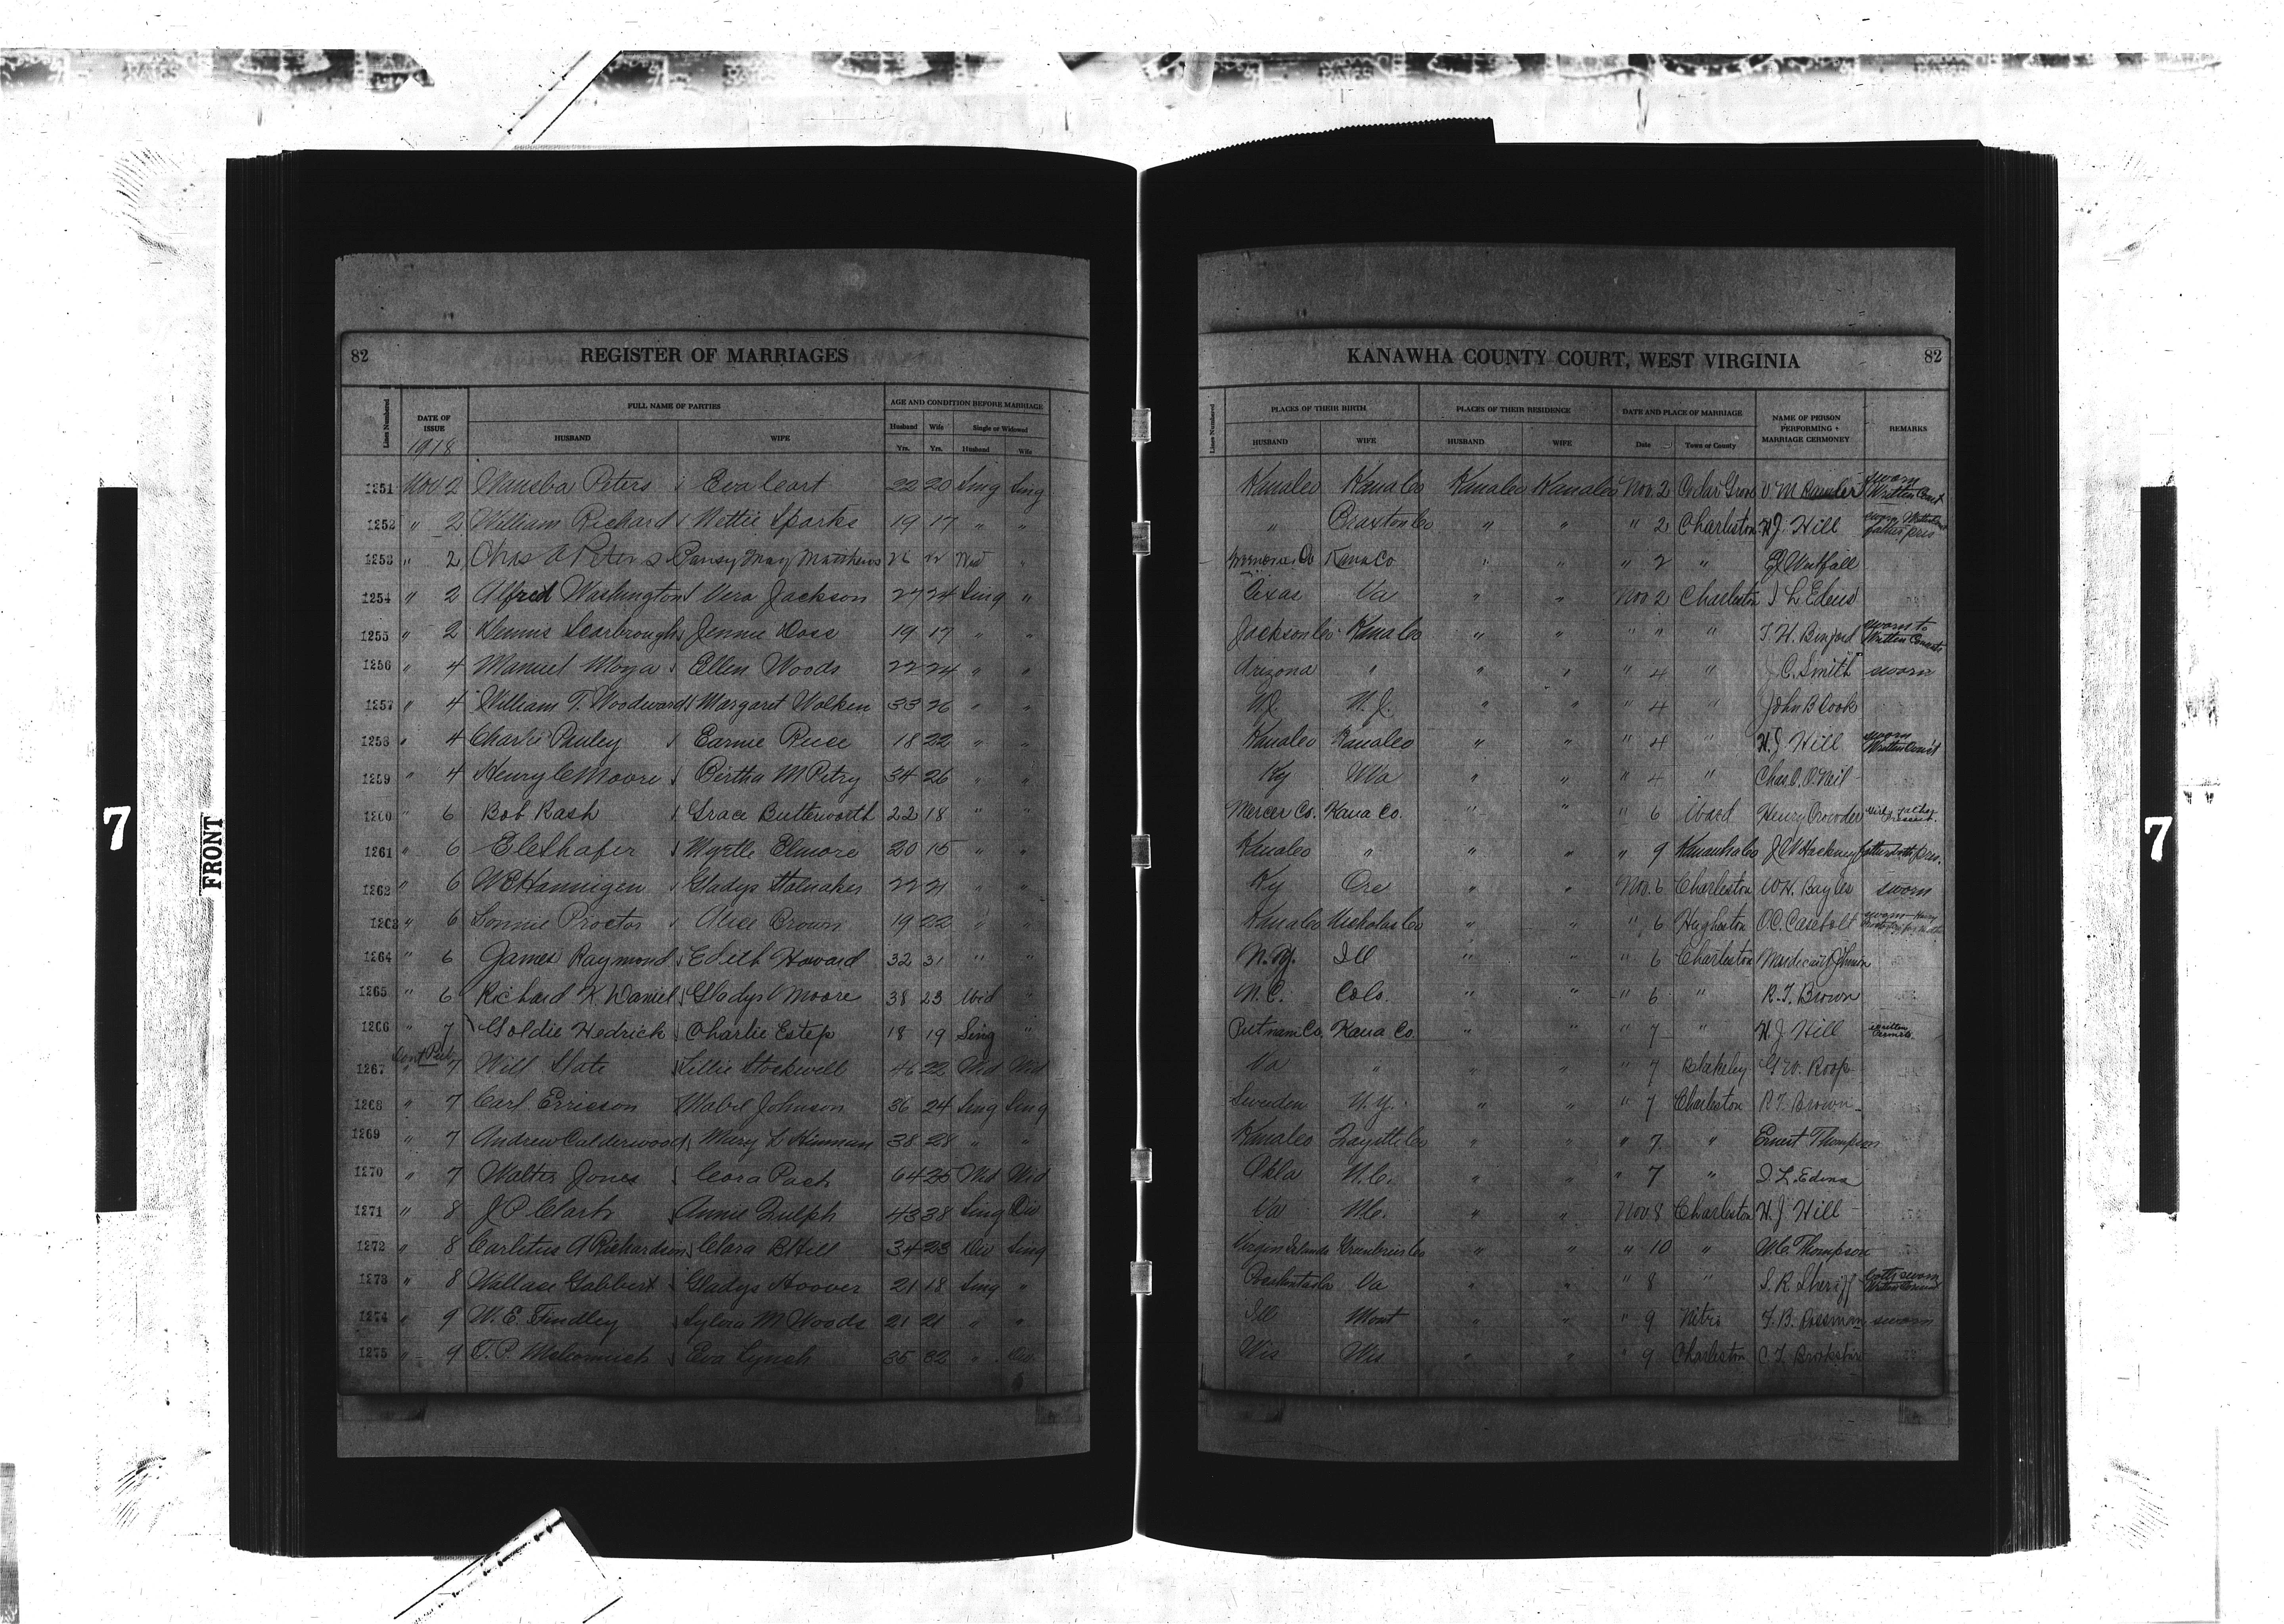 82 REGISTER OF MARRIAGES
Lines Numbered DATE OF ISSUE FULL NAME OF PARTIES AGE AND CONDITION BEFORE MARRIAGE
HUSBAND WIFE Husband Wife Single or Widowed
1918 Yrs. Yrs. Husband Wife
1251 Nov 2 Peters Eva 22 20 Sing Sing
1252 " 2 William Richard Nettie Sparks 19 17 " "
1253 " 2 Chas A Peters Pansy May Matthews 26 Wid "
1254 " 2 Alfred Washington Vera Jackson 27 24 Sing "
1255 " 2 Dennis Scarbrough Jennie Doss 19 17 " "
1256 " 4 Manuel Moya Ellen Woods 22 24 " "
1257 " 4 William T. Woodward Margaret Wolken 33 26 " "
1258 " 4 Charlie Pauley 18 22 " "
1259 " 4 Henry C Moore Bertha M Petry 34 26 " "
1260 " 6 Bob Rash Grace Butterworth 22 18 " "
1261 " 6 Myrtle Elmore 20 15 " "
1262 " 6 Hannigen Gladys Stalnaker 22 21 " "
1263 " 6 Lonnie Proctor Alice Brown 19 22 " "
1264 " 6 James Raymond Edith Howard 32 31 " "
1265 " 6 Richard K Daniel Gladys Moore 38 23 Wid "
1266 " 7 Goldie Hedrick Charlie Estep 18 19 Sing "
Dont Pub
1267 " 7 Will Slate Lillie Stockwell 46 22 Wid Wid
1268 " 7 Carl Erricson Mabel Johnson 36 24 Sing Sing
1269 " 7 Andrew Calderwood Mary L Hinman 38 28 " "
1270 " 7 Walter Jones Cora Pack 64 35 Wid Wid
1271 " 8 J P Clark Annie Dulph 43 38 Sing Div
1272 " 8 Carletus A Richardson Clara B Hill 34 23 Div Sing
1273 " 8 Wallace Gabbert Gladys Hoover 21 18 Sing "
1274 " 9 W. E. Findley Sylvia M Woods 21 21 " "
1275 " 9 Eva Lynch 35 32 " Div
KANAWHA COUNTY COURT, WEST VIRGINIA 82
Lines Numbered PLACES OF THEIR BIRTH PLACES OF THEIR RESIDENCE DATE AND PLACE OF MARRIAGE NAME OF PERSON PERFORMING MARRIAGE CERMONEY REMARKS
HUSBAND WIFE HUSBAND WIFE Date Town or County
Kana Co Kana Co Kana Co Kana Co Nov. 2 Cedar Grove V. M. sworn Written Const
" Braxton Co " " " 2 Charleston H.J. Hill
Monroe Co Kana Co " " " 2 " Westfall
Texas Va " " Nov 2 Charleston I L Edens
Jackson Co Kana Co " " " " " T. H. Binford sworn to Written Consents
Arizona " " " " 4 " J C. Smith sworn
N. J. " " " 4 " John B Cook
Kana Co Kana Co " " " 4 " H. J. Hill sworn Written Cons't
Ky WVa " " " 4 " Chas. O. Neil
Mercer Co. Kana Co. " " " 6 Ward Henry Crowder
Kana Co " " " " 9 Kanawha Co J W Hackney
Ky Ore " " Nov. 6 Charleston W H. Bayles sworn
Kana Co Nicholas Co " " " 6 Hugheston O.C. Casebolt
N.Y. Ill " " " 6 Charleston Mordecai Johnson
N. C. Colo. " " " 6 " R. T. Brown
Putnam Co. Kana Co. " " " 7 " H. J. Hill written
Va " " " " 7 Blakeley G W. Roop
Sweden N. Y. " " " 7 Charleston R T. Brown
Kana Co Fayette Co " " " 7 " Ernest Thompson
Okla N. C. " " " 7 " I. L. Edens
Va N.C. " " Nov 8 Charleston H. J. Hill
Virgin Islands Greenbrier Co " " " 10 " W. C. Thompson
Pocahontas Co Va " " " 8 " S. R. Sheriff both sworn Written Consent
Ill Mont " " " 9 Nitro F. B. Rossman sworn
Wis Wis " " " 9 Charleston C. T. Brookshire
7 FRONT
7